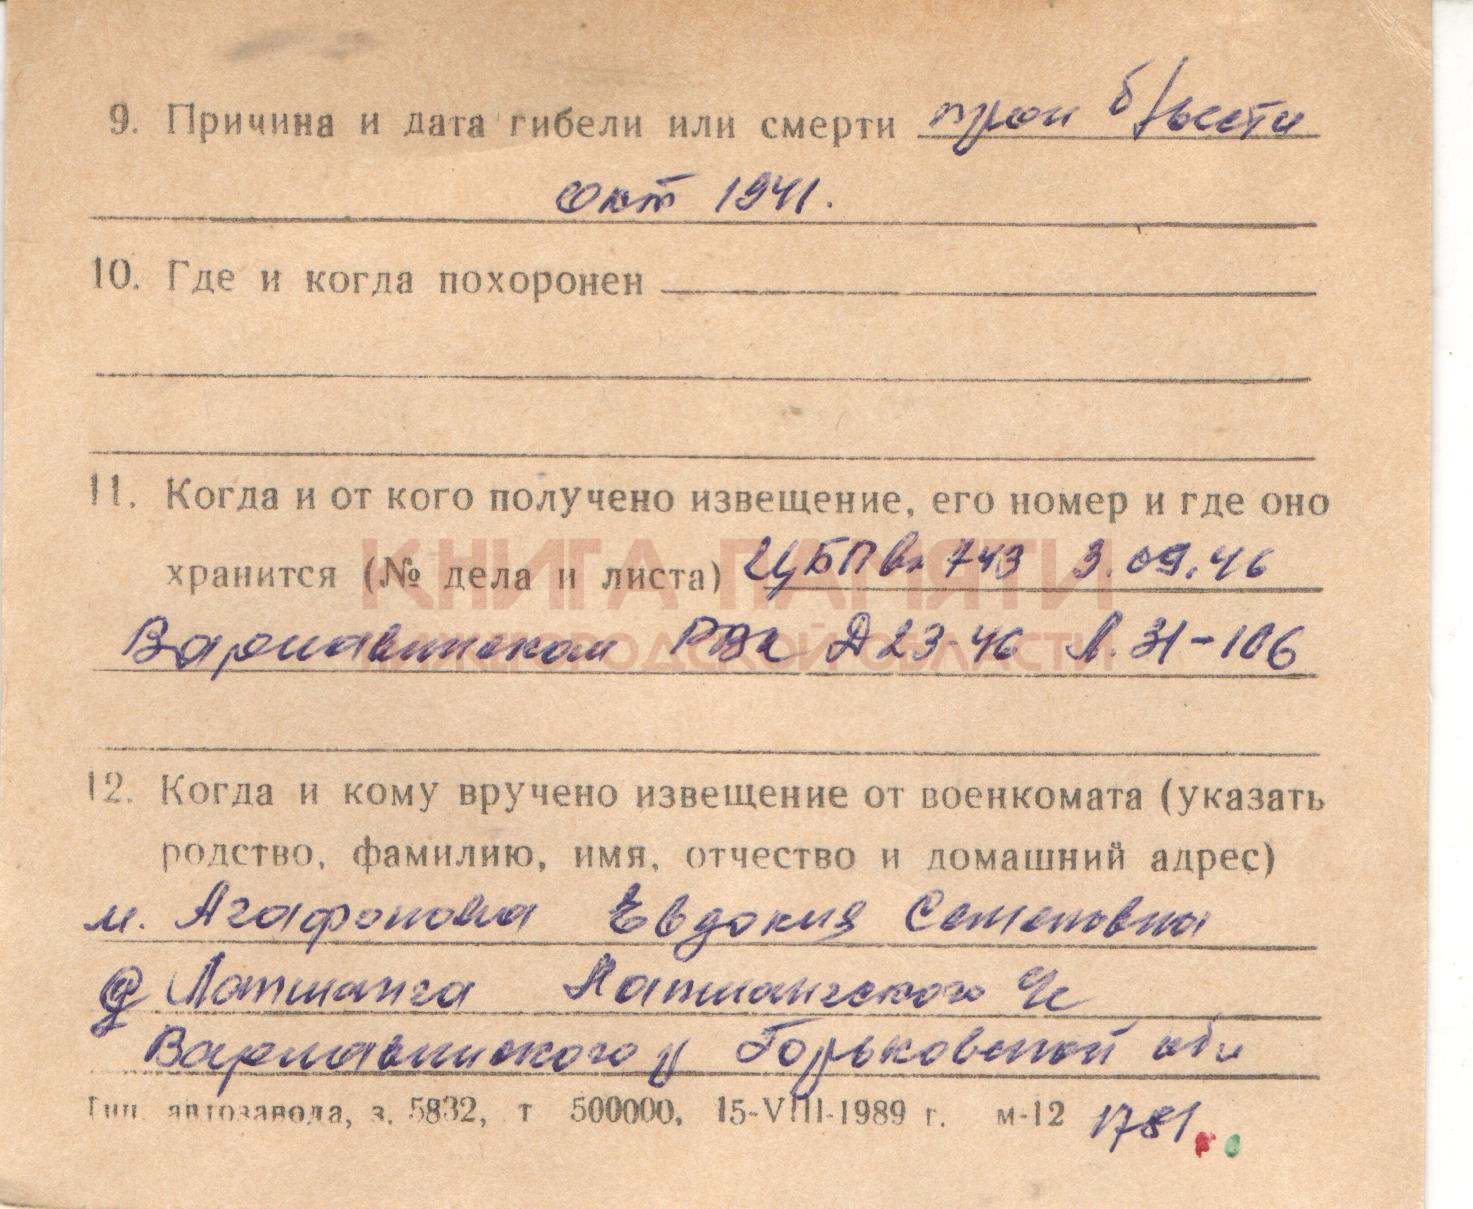 9. Причина и дата гибели или смерти проп б/вести
окт 1941.
10. Где и когда похоронен
11. Когда и от кого получено извещение, его номер и где оно
хранится (№ дела и листа) ЦБПвп 743 3.09.46
КНИГА ПАМЯТИ
Варнавинском РВК Д 23-46 Л. 31-106
НИЖЕГОРОДСКОЙ ОБЛАСТИ
12. Когда и кому вручено извещение от военкомата (указать
родство, фамилию, имя, отчество и домашний адрес)
м. Агафонова Евдокия Семеновна
д Лапшанга Лапшангского с/с
Варнавинского р Горьковской обл
Тип. автозавода, з. 5832, т 500000, 15-VIII-1989 г. м-12 1781.